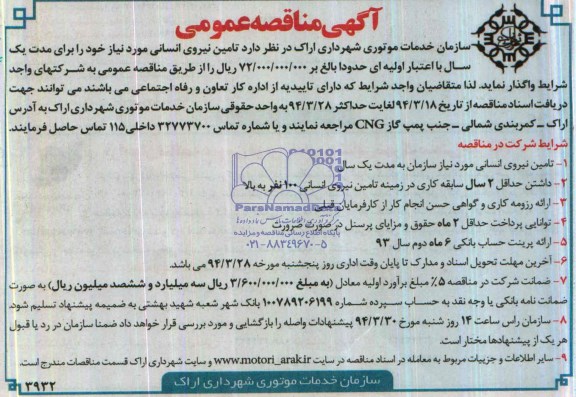 آگهی مناقصه عمومی
سازمان خدمات موتوری شهرداری اراک در نظر دارد تامین نیروی انسانی مورد نیاز خود را برای مدت یک
سال با اعتبار اولیه ای حدودا بالغ بر ۷۲/۰۰۰/۰۰۰/۰۰۰ ریال را از طریق مناقصه عمومی به شرکتهای واجد
شرایط واگذار نماید. لذا متقاضیان واجد شرایط که دارای تاییدیه از اداره کار تعاون و رفاه اجتماعی می باشند می توانند جهت
دریافت اسناد مناقصه از تاریخ ۹۴/۳/۱۸ لغایت حداکثر ۹۴/۳/۲۸ به واحد حقوقی سازمان خدمات موتوری شهرداری اراک به آدرس
اراک ـ کمربندی شمالی ـ جنب پمپ گاز CNG مراجعه نمایند و یا شماره تماس ۳۲۷۷۳۷۰۰ داخلی ۱۱۵ تماس حاصل فرمایند.
شرایط شرکت در مناقصه
۱- تامین نیروی انسانی مورد نیاز سازمان به مدت یک سال
۲- داشتن حداقل ۲ سال سابقه کاری در زمینه تامین نیروی انسانی ۱۰۰ نفر به بالا
۳- ارائه رزومه کاری و گواهی حسن انجام کار از کارفرمایان قبلی
۴- توانایی پرداخت حداقل ۲ ماه حقوق و مزایای پرسنل در صورت ضرورت
۵- ارائه پرینت حساب بانکی ۶ ماه دوم سال ۹۳
۶- آخرین مهلت تحویل اسناد و مدارک تا پایان وقت اداری روز پنجشنبه مورخه ۹۴/۳/۲۸ می باشد.
۷- ضمانت شرکت در مناقصه ۵٪ مبلغ برآورد اولیه معادل (به مبلغ ۳/۶۰۰/۰۰۰/۰۰۰ ریال سه میلیارد و ششصد میلیون ریال) به صورت
ضمانت نامه بانکی یا وجه نقد به حساب سپرده شماره ۱۰۰۷۸۹۲۰۶۱۹۹ بانک شهر شعبه شهید بهشتی به ضمیمه پیشنهاد تسلیم شود.
۸- سازمان راس ساعت ۱۴ روز شنبه مورخ ۹۴/۳/۳۰ پیشنهادات واصله را بازگشایی و مورد بررسی قرار خواهد داد ضمنا سازمان در رد یا قبول
هر یک از پیشنهادها مختار است.
۹- سایر اطلاعات و جزییات مربوط به معامله در اسناد مناقصه در سایت www.motori_arak.ir و سایت شهرداری اراک قسمت مناقصات مندرج است.
سازمان خدمات موتوری شهرداری اراک
۳۹۳۲
ParsNamadData
پایگاه اطلاع رسانی مناقصه و مزایده
۰۲۱-۸۸۳۴۹۶۷۰-۵